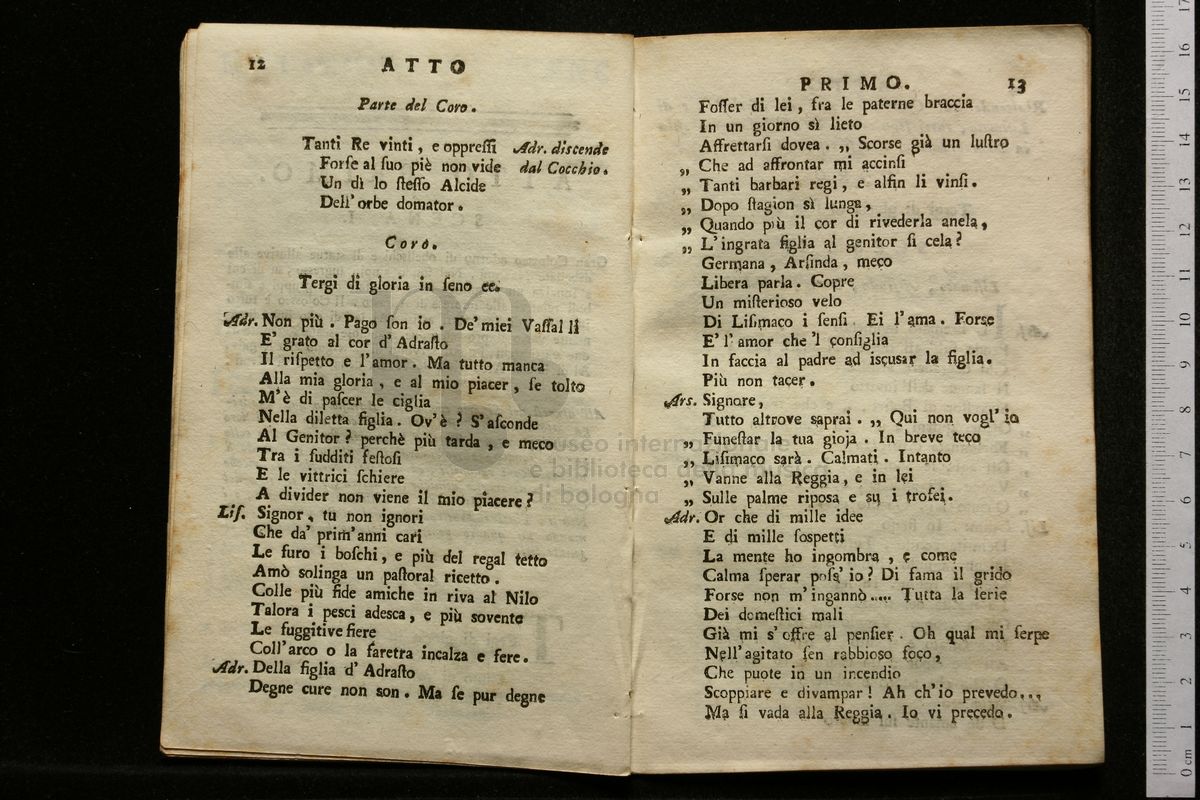 12 ATTO
Parte del Coro.
Tanti Re vinti, e oppreſſi Adr. discende
Forſe al ſuo piè non vide dal Cocchio.
Un dì lo ſteſſo Alcide
Dell' orbe domator.
Coro.
Tergi dì gloria in ſeno ec.
Adr. Non più. Pago ſon io. De' miei Vaſſalli
E' grato al cor d' Adraſto
Il riſpetto e l'amor. Ma tutto manca
Alla mia gloria, e al mio piacer, ſe tolto
M'è di paſcer le ciglia
Nella diletta figlia. Ov'è? S'aſconde
Al Genitor? perchè più tarda, e meco
Tra i ſudditi feſtoſi
E le vittrici ſchiere
A divider non viene il mio piacere?
Liſ. Signor, tu non ignori
Che da' prim'anni cari
Le furo i boſchi, e più del regal tetto
Amò solinga un paſtoral ricetto.
Colle più fide amiche in riva al Nilo
Talora i pesci adesca, e più sovente
Le fuggitive fiere
Coll'arco o la faretra incalza e fere.
Adr. Della figlia d' Adraſto
Degne cure non son. Ma ſe pur degne
PRIMO. 13
Foſſer di lei, fra le paterne braccia
In un giorno sì lieto
Affrettarſi dovea. „ Scorse già un luſtro
„ Che ad affrontar mi accinſi
„ Tanti barbari regi, e alfin li vinſi.
„ Dopo ſtagion sì lunga,
„ Quando più il cor di rivederla anela,
„ L' ingrata figlia al genitor ſi cela?
Germana, Arſinda, meco
Libera parla. Copre
Un miſterioso velo
Di Liſimaco i ſenſi. Ei l'ama. Forse
E' l' amor che 'l conſiglia
In faccia al padre ad iscusar la figlia.
Più non tacer.
Ars. Signore,
Tutto altrove saprai. „ Qui non vogl' io
„ Funeſtar la tua gioja. In breve teco
„ Liſimaco sarà. Calmati. Intanto
„ Vanne alla Reggia, e in lei
„ Sulle palme riposa e su i trofei.
Adr. Or che di mille idee
E di mille ſospetti
La mente ho ingombra, e come
Calma ſperar poſs' io? Di fama il grido
Forse non m'ingannò..... Tutta la ſerie
Dei domeſtici mali
Già mi s'offre al penſier. Oh qual mi ſerpe
Nell'agitato ſen rabbioso foco,
Che puote in un incendio
Scoppiare e divampar! Ah ch'io prevedo...
Ma ſi vada alla Reggia. Io vi precedo.
museo internazionale
e biblioteca della musica
di bologna
0 cm 1 2 3 4 5 6 7 8 9 10 11 12 13 14 15 16 17